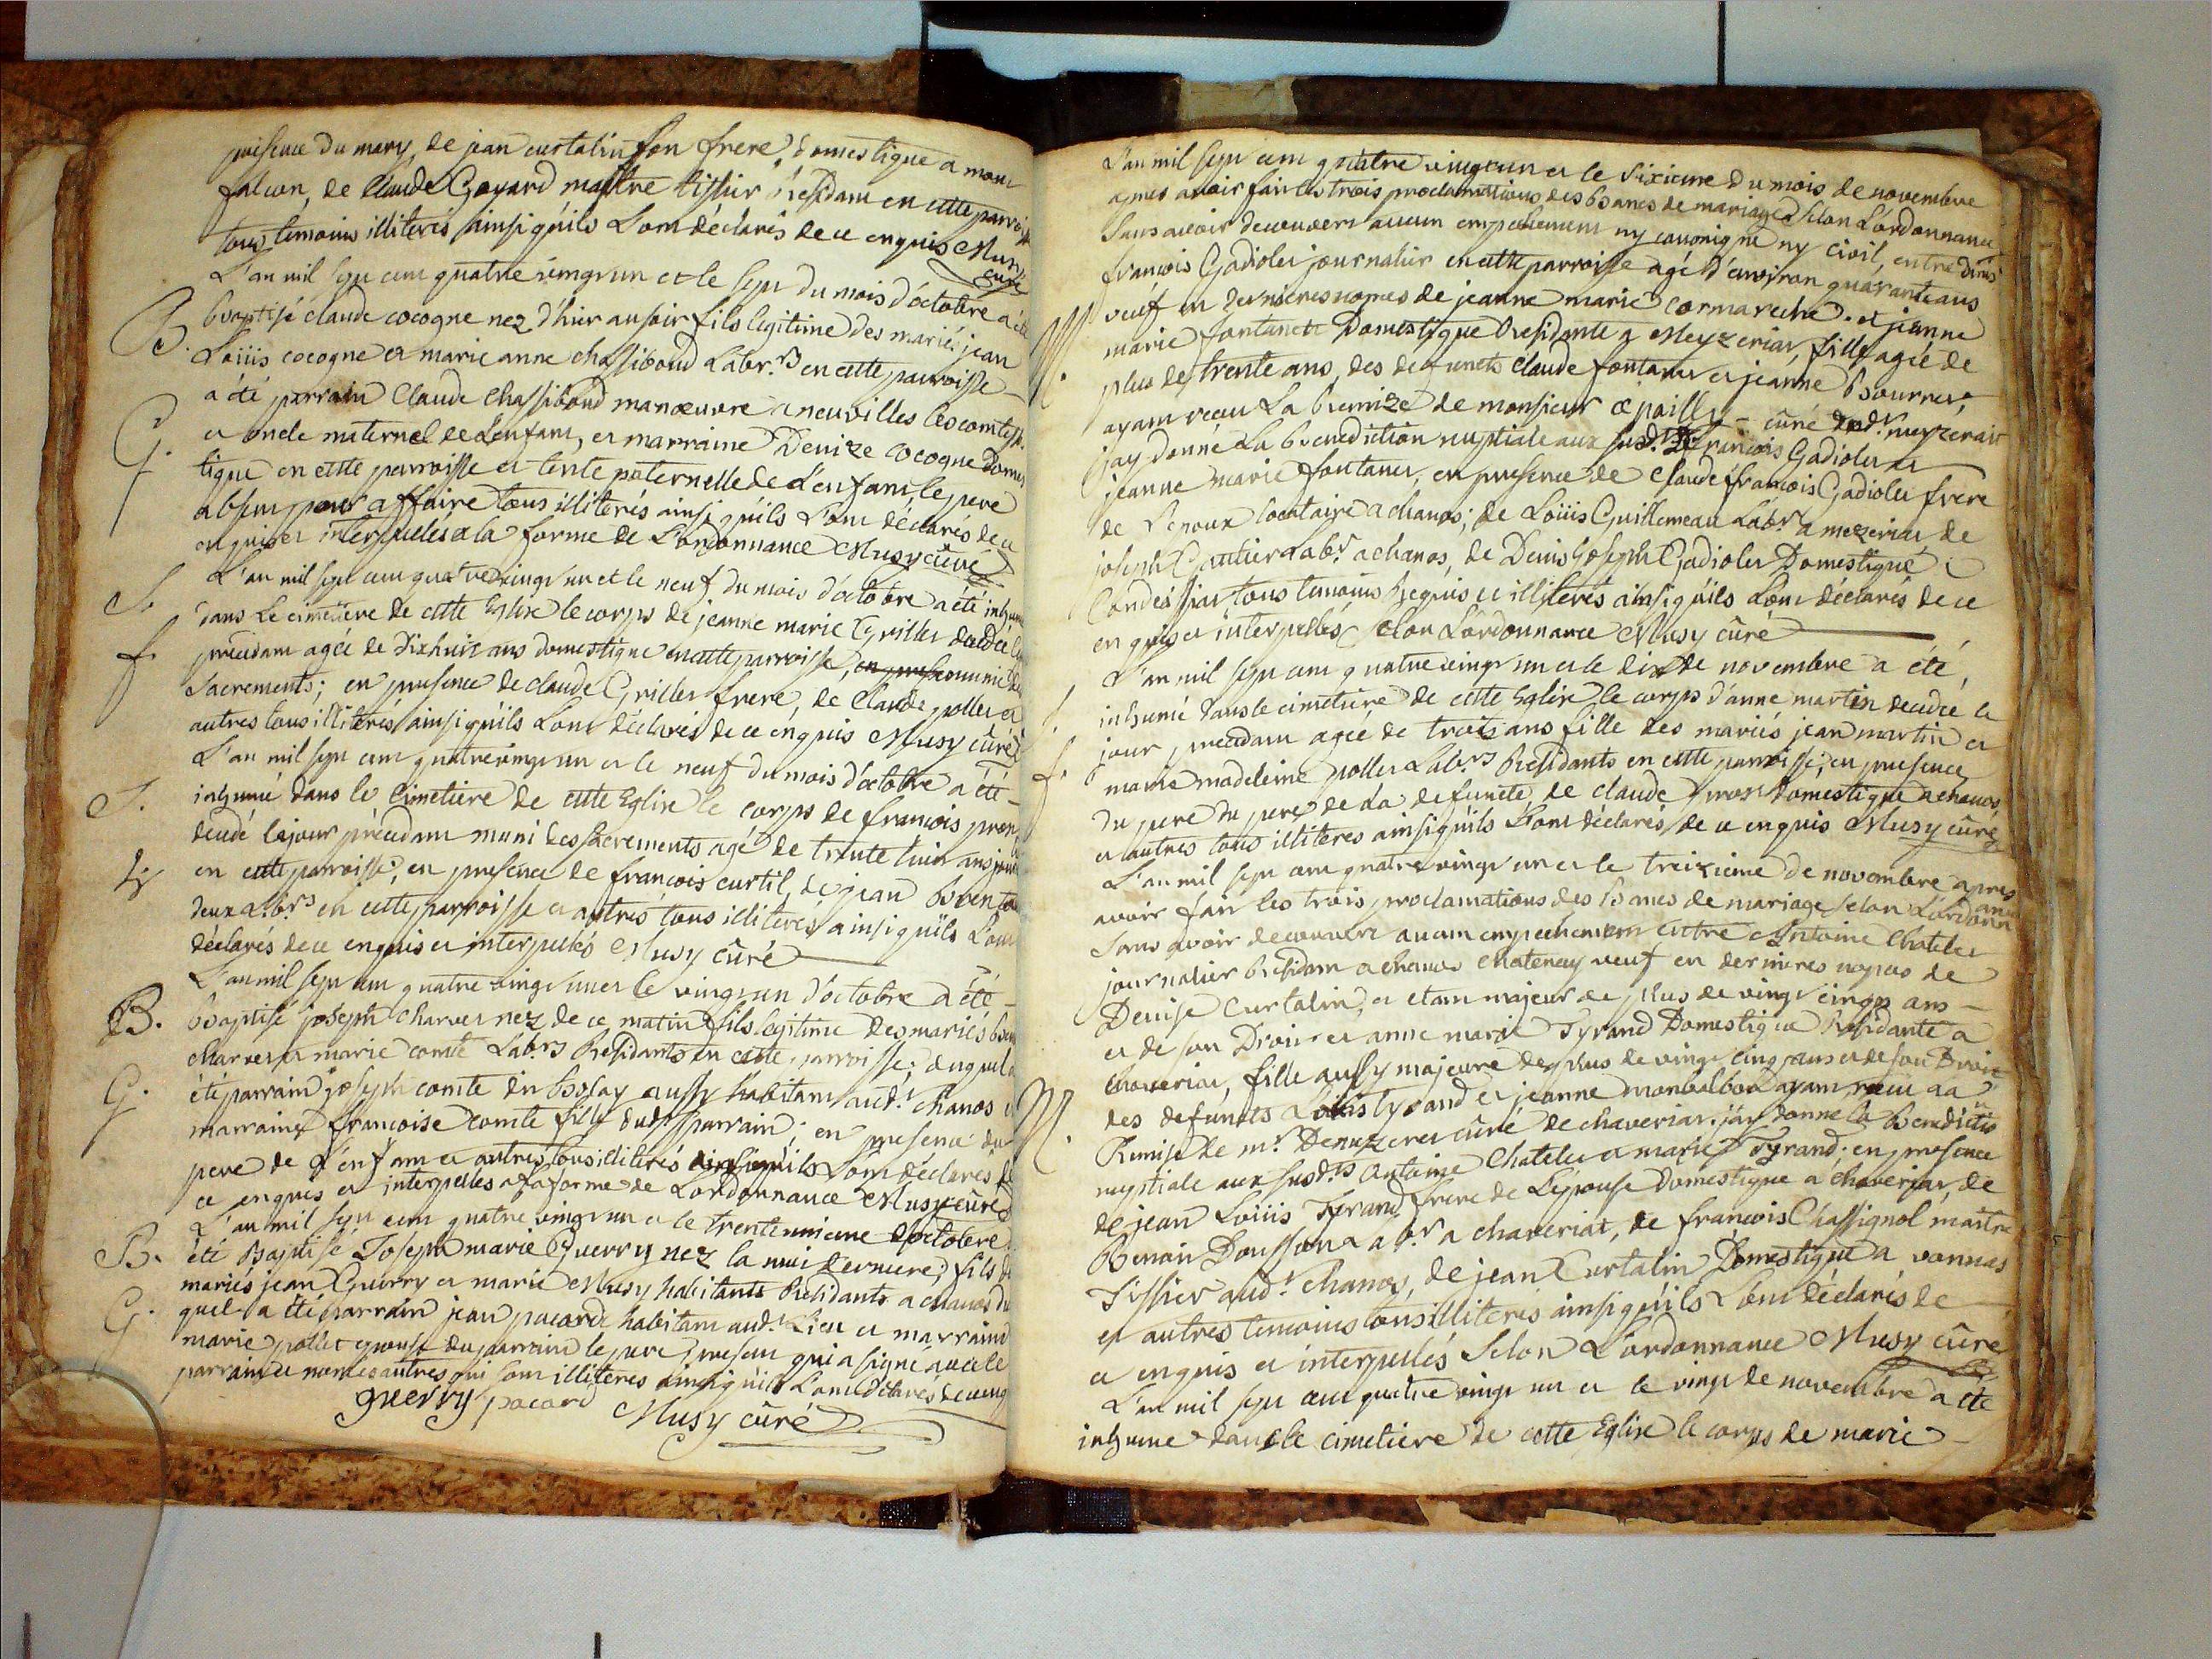 presence du mary, de jean curtalin son frere, domestique a mont
falcon, de Claude Goyard maitre tissier residant en cette parroisse
tous temoins illiterés ainsi qu'ils l'ont déclarés de ce enquis Musy
curé
L'an mil sept cent quatre vingt un et le sept du mois d'octobre a été
B. baptisé claude cocogne nez d'hier au soir fils legitime des mariés jean
Loüis cocogne et marie anne chassiboud Labr.rs en cette parroisse
a été parrain Claude Chassiboud manœuvre a neuvilles les comtesse
G. et oncle maternel de l'enfant, et marraine Denize cocogne domes
tique en cette parroisse et tente paternelle de l'enfant, le pere
absent pour affaire tous illiterés ainsi qu'ils l'ont déclarés de ce
enquis et interpellés a la forme de L'ordonnance Musy curé
L'an mil sept cent quatre vingt un et le neuf du mois d'octobre a été inhumé
S. dans le cimetiere de cette Eglise le corps de jeanne marie Grillet decedée
f. précédant agée de dixhuit ans domestique en cette parroisse, munie des
Sacrements; en presence de claude Grillet frere, de Claude pollet et
autres tous illiterés ainsi qu'ils l'ont déclarés de ce enquis Musy curé
L'an mil sept cent quatre vingt un et le neuf du mois d'octobre a été
S. inhumé dans le Cimetiere de cette Eglise le corps de francois
decedé le jour précédant muni des sacrements agé de trente huit ans
en cette parroisse, en presence de francois curtil, de jean
deux Labr.rs en cette parroisse et autres tous illiterés ainsi qu'ils l'ont
déclarés de ce enquis et interpellés Musy curé
L'an mil sept cent quatre vingt un et le vingt un d'octobre a été
B. Baptisé joseph charvet nez de ce matin fils legitime des mariés
charvet et marie comte Labr.rs Residants en cette parroisse; duquel a
G. été parrain joseph comte du aussy habitant aud.t chanos et
marraine francoise comte fille dud.t parrain; en presence du
pere de l'enfant et autres tous illiterés ainsi qu'ils l'ont déclarés de
ce enquis et interpelles a la forme de L'ordonnance Musy curé
L'an mil sept cent quatre vingt un et le trente unieme d'octobre a
B. été Baptisé Joseph marie Guerry nez la nuit derniere, fils des
mariés jean Guerry et marie Musy habitants Residants a chanos du
G. quel a été parrain jean pacard habitant aud.t Lieu et marraine
marie pollet epouse du parrain le pere present qui a signé avec le
parrain et non les autres qui sont illiteres ainsi qu'ils l'ont déclarés de ce enq
guerry pacard Musy curé
L'an mil sept cent quatre vingt un et le sixieme du mois de novembre
apres avoir fait les trois proclamations des bancs de mariage selon L'ordonnance
sans avoir decouvert aucun empechement ny canonique ny civil, entre denis
francois Gadiolet journalier en cette parroisse agé d'environ quarante ans
M. veuf en dernieres nopces de jeanne marie cormareche. et jeanne
marie fontanet Domestique Residante a Meyzeriat, fille agée de
plus de trente ans, des defuncts Claude fontanet et jeanne
ayant recu la Remize de monsieur curé dud.t meyzeriat
j'ay donné La benediction nuptiale aux susd.ts francois Gadiolet et
jeanne marie fontanet, en presence de Claude francois Gadiolet frere
de L'epoux locataire a chanos; de Loüis Guillemeau Labr a mezeriat de
joseph Labr. a chanos, de Denis joseph Gadiolet Domestique a
Condeissiat tous temoins Requis et illiterés ainsi qu'ils l'ont déclarés de ce
enquis et interpellés selon L'ordonnance Musy curé
L'an mil sept cent quatre vingt un et le dix de novembre a été,
S. inhumé dans le cimetiere de cette Eglise le corps d'anne martin decedée le
f. jour precedant agée de trois ans fille des mariés jean martin et
marie madeleine pollet Labr.rs Residants en cette parroisse, en presence
du pere du pere de La defuncte, de claude domestique a chanos
et autres tous illiteres ainsi qu'ils l'ont déclarés de ce enquis Musy curé
L'an mil sept cent quatre vingt un et le treizieme de novembre apres
avoir fait les trois proclamations des Bancs de mariage selon L'ordonn
ance
sans avoir decouvert aucun empechement entre Antoine Chatelet
journalier Residant a chanos chatenay veuf en dernieres nopces de
Denise Curtalin, et etant majeur de plus de vingt cinq ans
et de son Droit et anne marie Tyrand Domestique Residante a
chaveriat, fille aussy majeure de plus de vingt cinq ans et de son Droit
M. des defuncts Loüis tyrand et jeanne ayant recu La
Remise de m.r curé de chaveriat. j'ay donné la Benedictio
nuptiale aux susd.ts Antoine Chatelet et marie Tyrand; en presence
de jean Loüis Tyrand frere de L'epouse Domestique a chaveriat, de
Benoit Labr. a chaveriat, de francois Chassignol maitre
Tissier aud.t Chanos, de jean Curtalin Domestique a vonnas
et autres temoins tous illiterés ainsi qu'ils l'ont déclarés de
ce enquis et interpellés selon L'ordonnance Musy curé
L'an mil sept cent quatre vingt un et le vingt de novembre a été
inhumé dans le cimetiere de cette Eglise le corps de marie